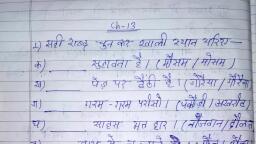 Ch-13
1) सही शब्द चुन कर खाली स्थान भरिए—
क) ______ सुहावना है। (मौसम / मोसम)
ख) ______ पेड़ पर बैठी है। (गोरैया / गौरैया)
ग) ______ गरम-गरम परोसो। (पकौड़ी /
घ) ______ साहस मत हार। (नौजवान /